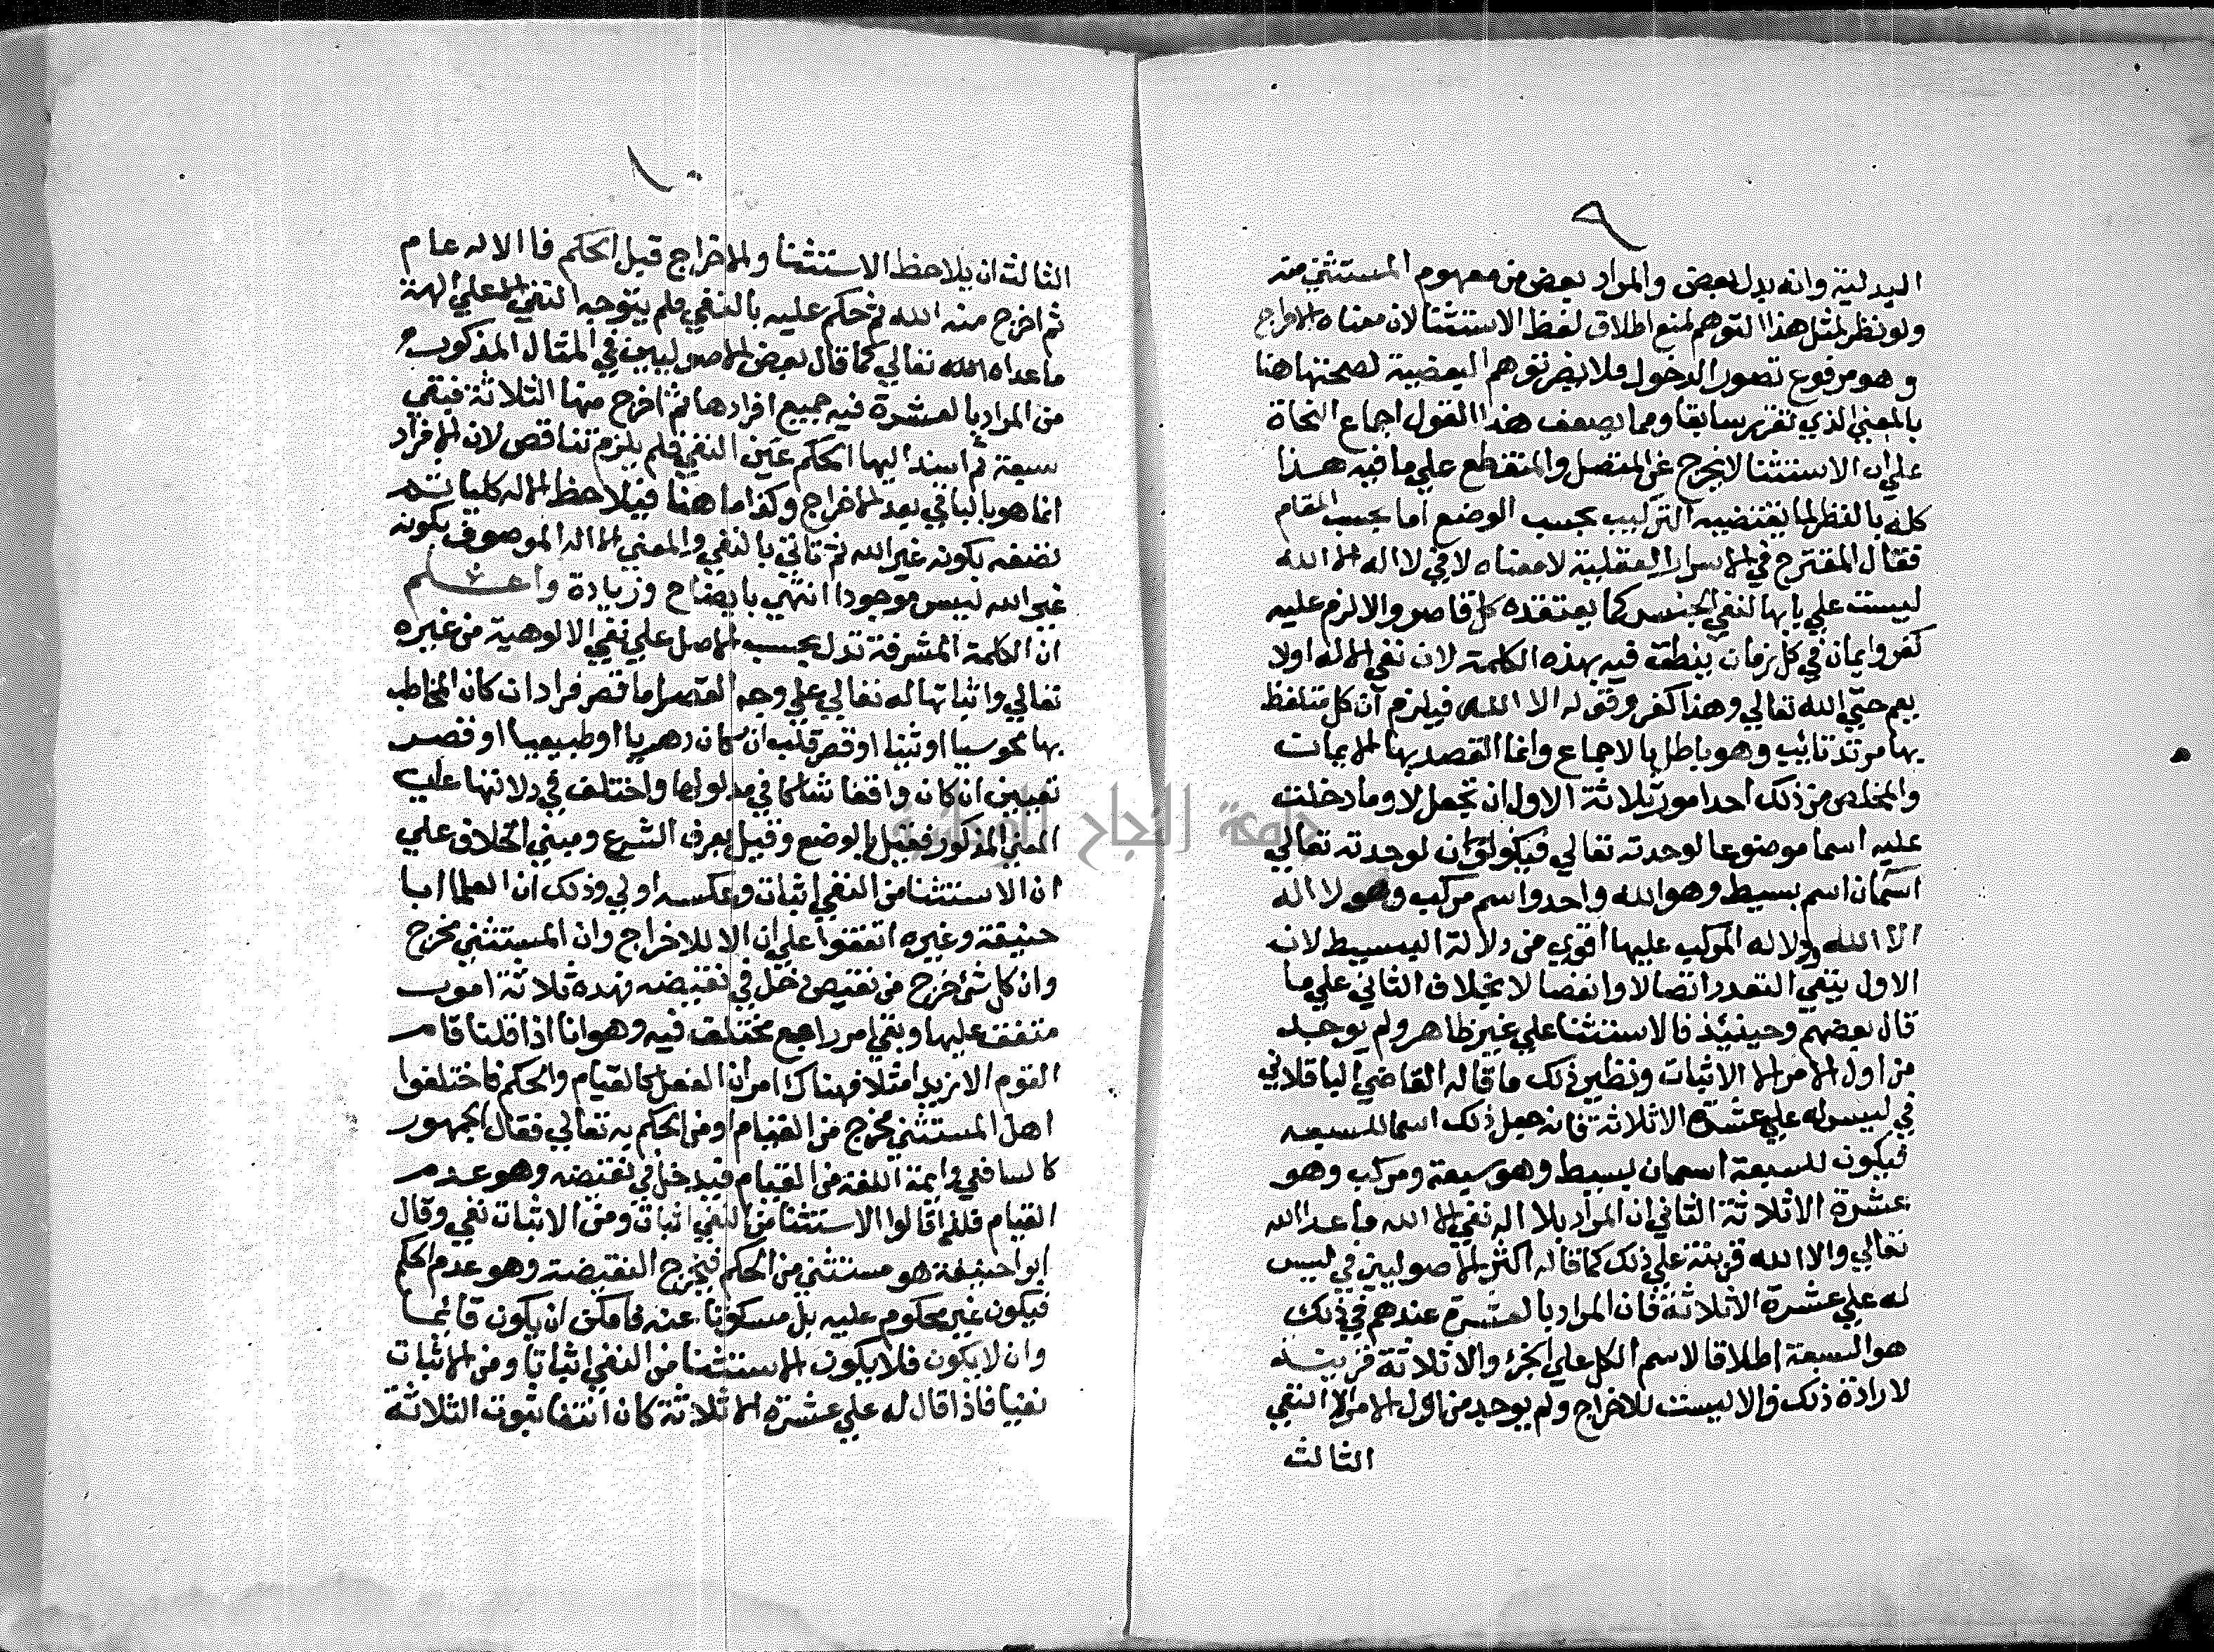 ٩
البدلية وانه بدل بعض والمراد بعض من مفهوم المستثني منه
ولو نظر لمثل هذا التوهم لمنع اطلاق لفظ الاستثنا لان معناه الاخراج
وهو مرفوع تصور الدخول ولا يضر توهم البعضية لصحتها هنا
بالمعني الذي تقرر سابقا ومما يضعف هذا القول اجماع النحاة
علي ان الاستثنا لا يخرج عن المتصل والمنقطع علي ما فيه هذا
كله بالنظر لما يقتضيه التركيب بحسب الوضع اما بحسب المقام
فقال المقترح في الاسرار العقلية لا معناه لا في لا اله الا الله
ليست علي بابها لنفي الجنس كما يعتقده كل قاصر والا لزم عليه
كفر وايمان في كل زمان ينطق فيه بهذه الكلمة لان نفي الاله اولا
يعم حتي الله تعالي وهذا كفر وقوله الا الله فيلزم ان كل متلفظ
بها مرتد تائب وهو باطل بالاجماع وانما القصد بها الايمان
والمخلص من ذلك احد امور ثلاثة الاول ان تجعل لا وما دخلت
عليه اسما موضوعا لوحدته تعالي فيكون لوحدته تعالي
اسمان اسم بسيط وهو الله واحد واسم مركب وهو لا اله
الا الله ودلاله المركب عليها اقوي من دلالة البسيط لان
الاول ينفي التعدد اتصالا وانفصالا بخلاف الثاني علي ما
قال بعضهم وحينيذ فالاستثنا علي غير ظاهر ولم يوجد
من اول الامر الا الاثبات ونظير ذلك ما قاله القاضي الباقلاني
في ليس له علي عشرة الا ثلاثة فانه جعل ذلك اسما للسبعه
فيكون للسبعة اسمان بسيط وهو سبعة ومركب وهو
عشرة الا ثلاثة الثاني ان المراد بلا اله نفي الا الله ما عدا الله
تعالي والا الله قرينة علي ذلك كما قاله اكثر الاصوليين في ليس
له علي عشرة الا ثلاثة فان المراد بالعشرة عندهم في ذلك
هو السبعة اطلاقا لاسم الكل علي الجزء والا ثلاثة قرينة
لارادة ذلك والا ليست للاخراج ولم يوجد من اول الامر الا النفي
الثالث
١٠
الثالث ان يلاحظ الاستثنا والاخراج قبل الحكم فالاله عام
ثم اخرج منه الله ثم حكم عليه بالنفي فلم يتوجه النفي الا علي الهة
ما عداه الله تعالي كما قال بعض الاصوليين في المقال المذكور
من المراد بالعشرة فيه جميع افرادها ثم اخرج منها الثلاثة فبقي
سبعة ثم اسند اليها الحكم عين النفي فلم يلزم تناقص لان الافراد
انما هو بالباقي بعد الاخراج وكذا ما هنا فيلاحظ الاله كليا ثم
نصفه بكونه غير الله ثم تاتي بالنفي والمعني الا اله الموصوف بكونه
غير الله ليس موجودا انتهي بايضاح وزيادة واعلم
ان الكلمة المشرفة تدل بحسب الاصل علي نفي الالوهية من غيره
تعالي واثباتها له تعالي علي وجه القصر اما قصر افراد ان كان المخاطب
بها مجوسيا او ثنيا او قصر قلب ان كان دهريا او طبيعيا او قصر
تعيين ان كان واقفا شاكا في مدلولها واختلف في دلالتها علي
المعني المذكور فقيل بالوضع وقيل بعرف الشرع ومبني الخلاف علي
ان الاستثنا من النفي اثبات وعكسه اولي وذلك ان العلما ابا
حنيفة وغيره اتفقوا علي ان الا للاخراج وان المستثني مخرج
وان كل شئ خرج من نقيض دخل في نقيضه فهذه ثلاثة امور
متفق عليها وبقي امر راجع مختلف فيه وهو انا اذا قلنا قام
القوم الا زيدا مثلا فهناك امران الفعل كالقيام والحكم فاختلفوا
اهل المستثني مخرج من القيام او من الحكم به تعالي فقال الجمهور
كالسافعي وايمة اللغة من القيام فيدخل في نقيضه وهو عدم
القيام فلذا قالوا الاستثنا من النفي اثبات ومن الاثبات نفي وقال
ابو احنيفة هو مستثني من الحكم فيخرج النقيضة وهو عدم الحكم
فيكون غير محكوم عليه بل مسكوتا عنه فامكن ان يكون قائما
وان لا يكون فلا يكون الاستثنا من النفي اثباتا ومن الاثبات
نفيا فاذا قال له علي عشرة الا ثلاثة كان انتفا ثبوت الثلاثة
جامعة النجاح الوطنية